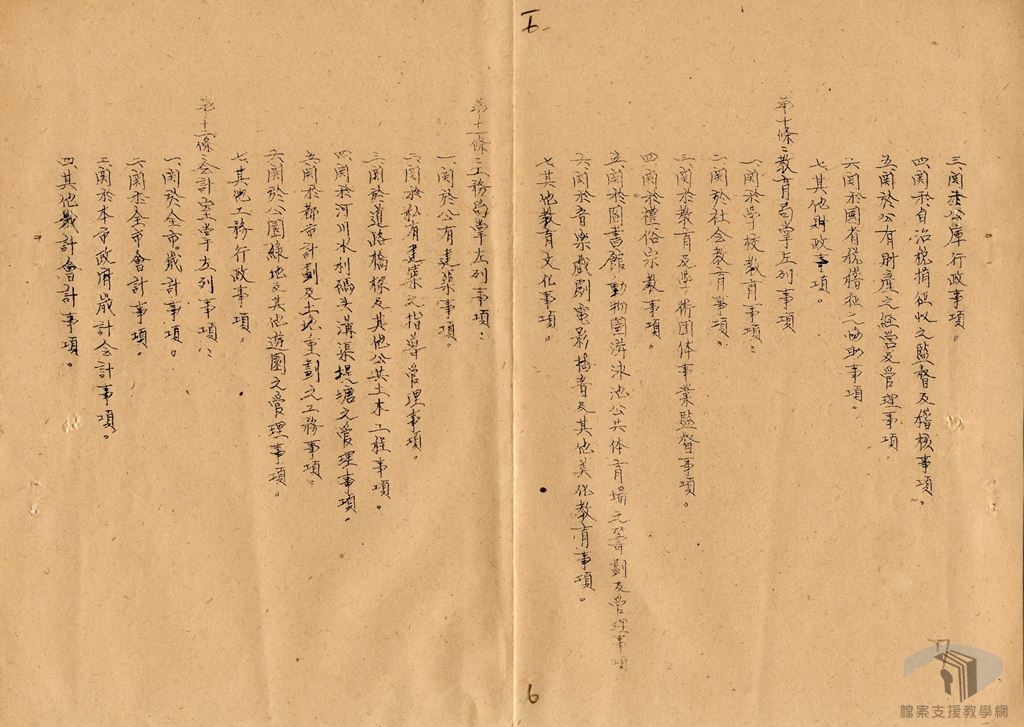 三、関於公庫行政事項。
四、関於自治稅捐征收之監督及稽核事項。
五、関於公有財產之経営及管理事項。
六、関於國有稅稽征之協助事項。
七、其他財政事項。
第十條：教育局掌左列事項
一、関於学校教育事項：
二、関於社会教育事項。
三、関於教育及學術団体事業監督事項。
四、関於禮俗宗教事項。
五、関於図書館動物園游泳池公共体育場之籌劃及管理事項
六、関於音楽戲劇電影播音及其他美化教育事項。
七、其他教育文化事項
第十一條：工務局掌左列事項：
一、関於公有建築事項。
二、関於私有建築之指導管理事項。
三、関於道路橋樑及其他公共土木工程事項。
四、関於河川水利碼头溝渠堤塘之管理事項。
五、関於都市計劃及土地重劃之工務事項。
六、関於公園綠地及其他遊園之管理事項。
七、其他工務行政事項。
第十二條：会計室掌左列事項：
一、関於全市歲計事項。
二、関於全市會計事項。
三、関於本市政府歲計会計事項。
四、其他歲計會計事項。
6
檔案支援教學網